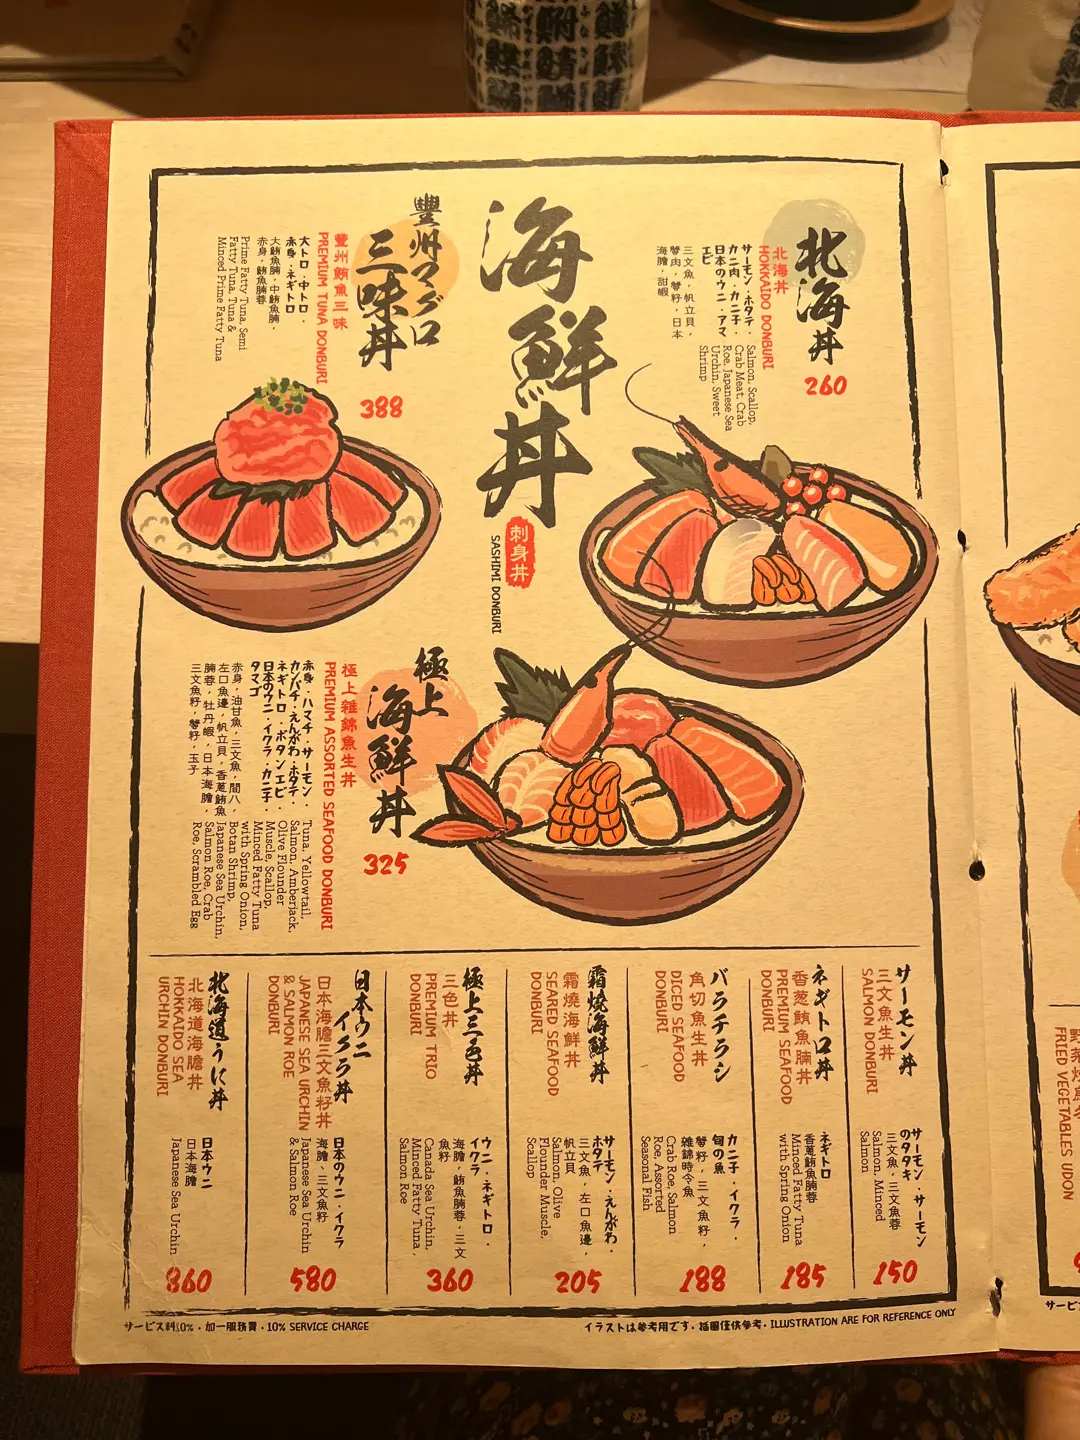 海鮮丼
刺身丼
SASHIMI DONBURI
北海丼
260
北海丼
HOKKAIDO DONBURI
サーモン・ホタテ・
カニ肉・カニ子・
日本のウニ・アマ
エビ
三文魚，帆立貝，
蟹肉，蟹籽，日本
海膽，甜蝦
Salmon, Scallop,
Crab Meat, Crab
Roe, Japanese Sea
Urchin, Sweet
Shrimp
豐州マグロ
三味丼
388
豐州鮪魚三味
PREMIUM TUNA DONBURI
大トロ・中トロ・
赤身・ネギトロ
大鮪魚腩，中鮪魚腩，
赤身，鮪魚腩蓉
Prime Fatty Tuna, Semi
Fatty Tuna, Tuna &
Minced Prime Fatty Tuna
極上
海鮮丼
325
極上雜錦魚生丼
PREMIUM ASSORTED SEAFOOD DONBURI
赤身・ハマチ・サーモン・
カンパチ・えんがわ・ホタテ・
ネギトロ・ボタンエビ・
日本のウニ・イクラ・カニ子・
タマゴ
赤身，油甘魚，三文魚，間八，
左口魚邊，帆立貝，香蔥鮪魚
腩蓉，牡丹蝦，日本海膽，
三文魚籽，蟹籽，玉子
Tuna, Yellowtail,
Salmon, Amberjack,
Olive Flounder
Muscle, Scallop,
Minced Fatty Tuna
with Spring Onion,
Botan Shrimp,
Japanese Sea Urchin,
Salmon Roe, Crab
Roe, Scrambled Egg
サーモン丼
三文魚生丼
SALMON DONBURI
サーモン・サーモン
のタタキ
三文魚，三文魚蓉
Salmon, Minced
Salmon
150
ネギトロ丼
香蔥鮪魚腩丼
PREMIUM SEAFOOD
DONBURI
ネギトロ
香蔥鮪魚腩蓉
Minced Fatty Tuna
with Spring Onion
185
バラチラシ
角切魚生丼
DICED SEAFOOD
DONBURI
カニ子・イクラ・
旬の魚
蟹籽，三文魚籽，
雜錦時令魚
Crab Roe, Salmon
Roe, Assorted
Seasonal Fish
188
霜焼海鮮丼
霜燒海鮮丼
SEARED SEAFOOD
DONBURI
サーモン・えんがわ・
ホタテ
三文魚，左口魚邊，
帆立貝
Salmon, Olive
Flounder Muscle,
Scallop
205
極上三色丼
三色丼
PREMIUM TRIO
DONBURI
ウニ・ネギトロ・
イクラ
海膽，鮪魚腩蓉，三文
魚籽
Canada Sea Urchin,
Minced Fatty Tuna,
Salmon Roe
360
日本ウニ
イクラ丼
日本海膽三文魚籽丼
JAPANESE SEA URCHIN
& SALMON ROE
DONBURI
日本のウニ・イクラ
海膽，三文魚籽
Japanese Sea Urchin
& Salmon Roe
580
北海道うに丼
北海道海膽丼
HOKKAIDO SEA
URCHIN DONBURI
日本ウニ
日本海膽
Japanese Sea Urchin
860
サービス料10%・加一服務費・10% SERVICE CHARGE
イラストは参考用です・插圖僅供參考・ILLUSTRATION ARE FOR REFERENCE ONLY
FRIED VEGETABLES UDON
サービス